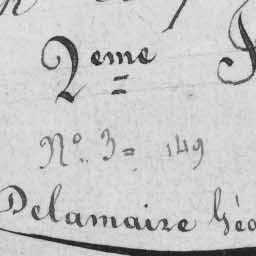 2eme
Nº. 3 = 149
Delamaire Géo